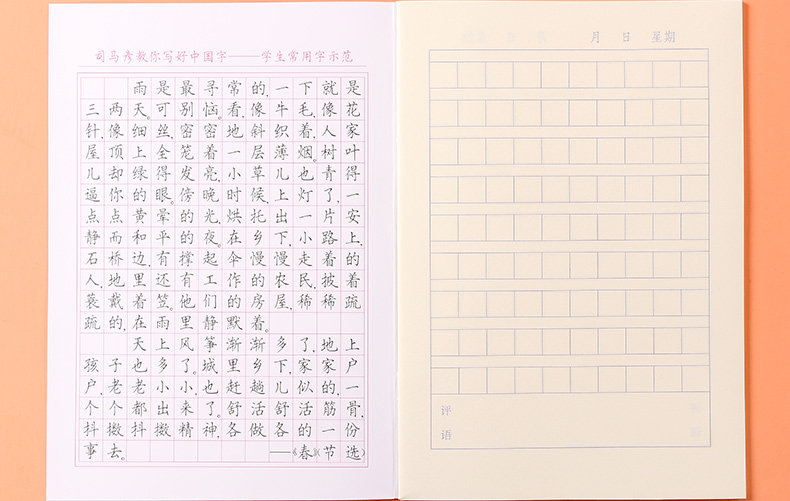 司马彦教你写好中国字——学生常用字示范
雨是最寻常的,一下就是
三两天。可别恼。看,像牛毛,像花
针,像细丝,密密地斜织着,人家
屋顶上全笼着一层薄烟。树叶
儿却绿得发亮,小草儿也青得
逼你的眼。傍晚时候,上灯了,一
点点黄晕的光,烘托出一片安
静而和平的夜。在乡下,小路上,
石桥边,有撑起伞慢慢走着的
人,地里还有工作的农民,披着
蓑戴着笠。他们的房屋,稀稀疏
疏的,在雨里静默着。
天上风筝渐渐多了,地上
孩子也多了。城里乡下,家家户
户,老老小小,也赶趟儿似的,一
个个都出来了。舒活舒活筋骨,
抖擞抖擞精神,各做各的一份
事去。 ——《春》(节选)
月 日 星期
评
语